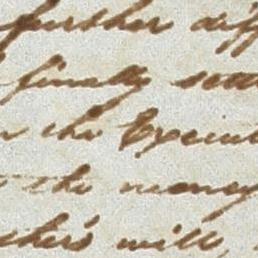 further diff
finally sett
the Execut
the money
ther's will,